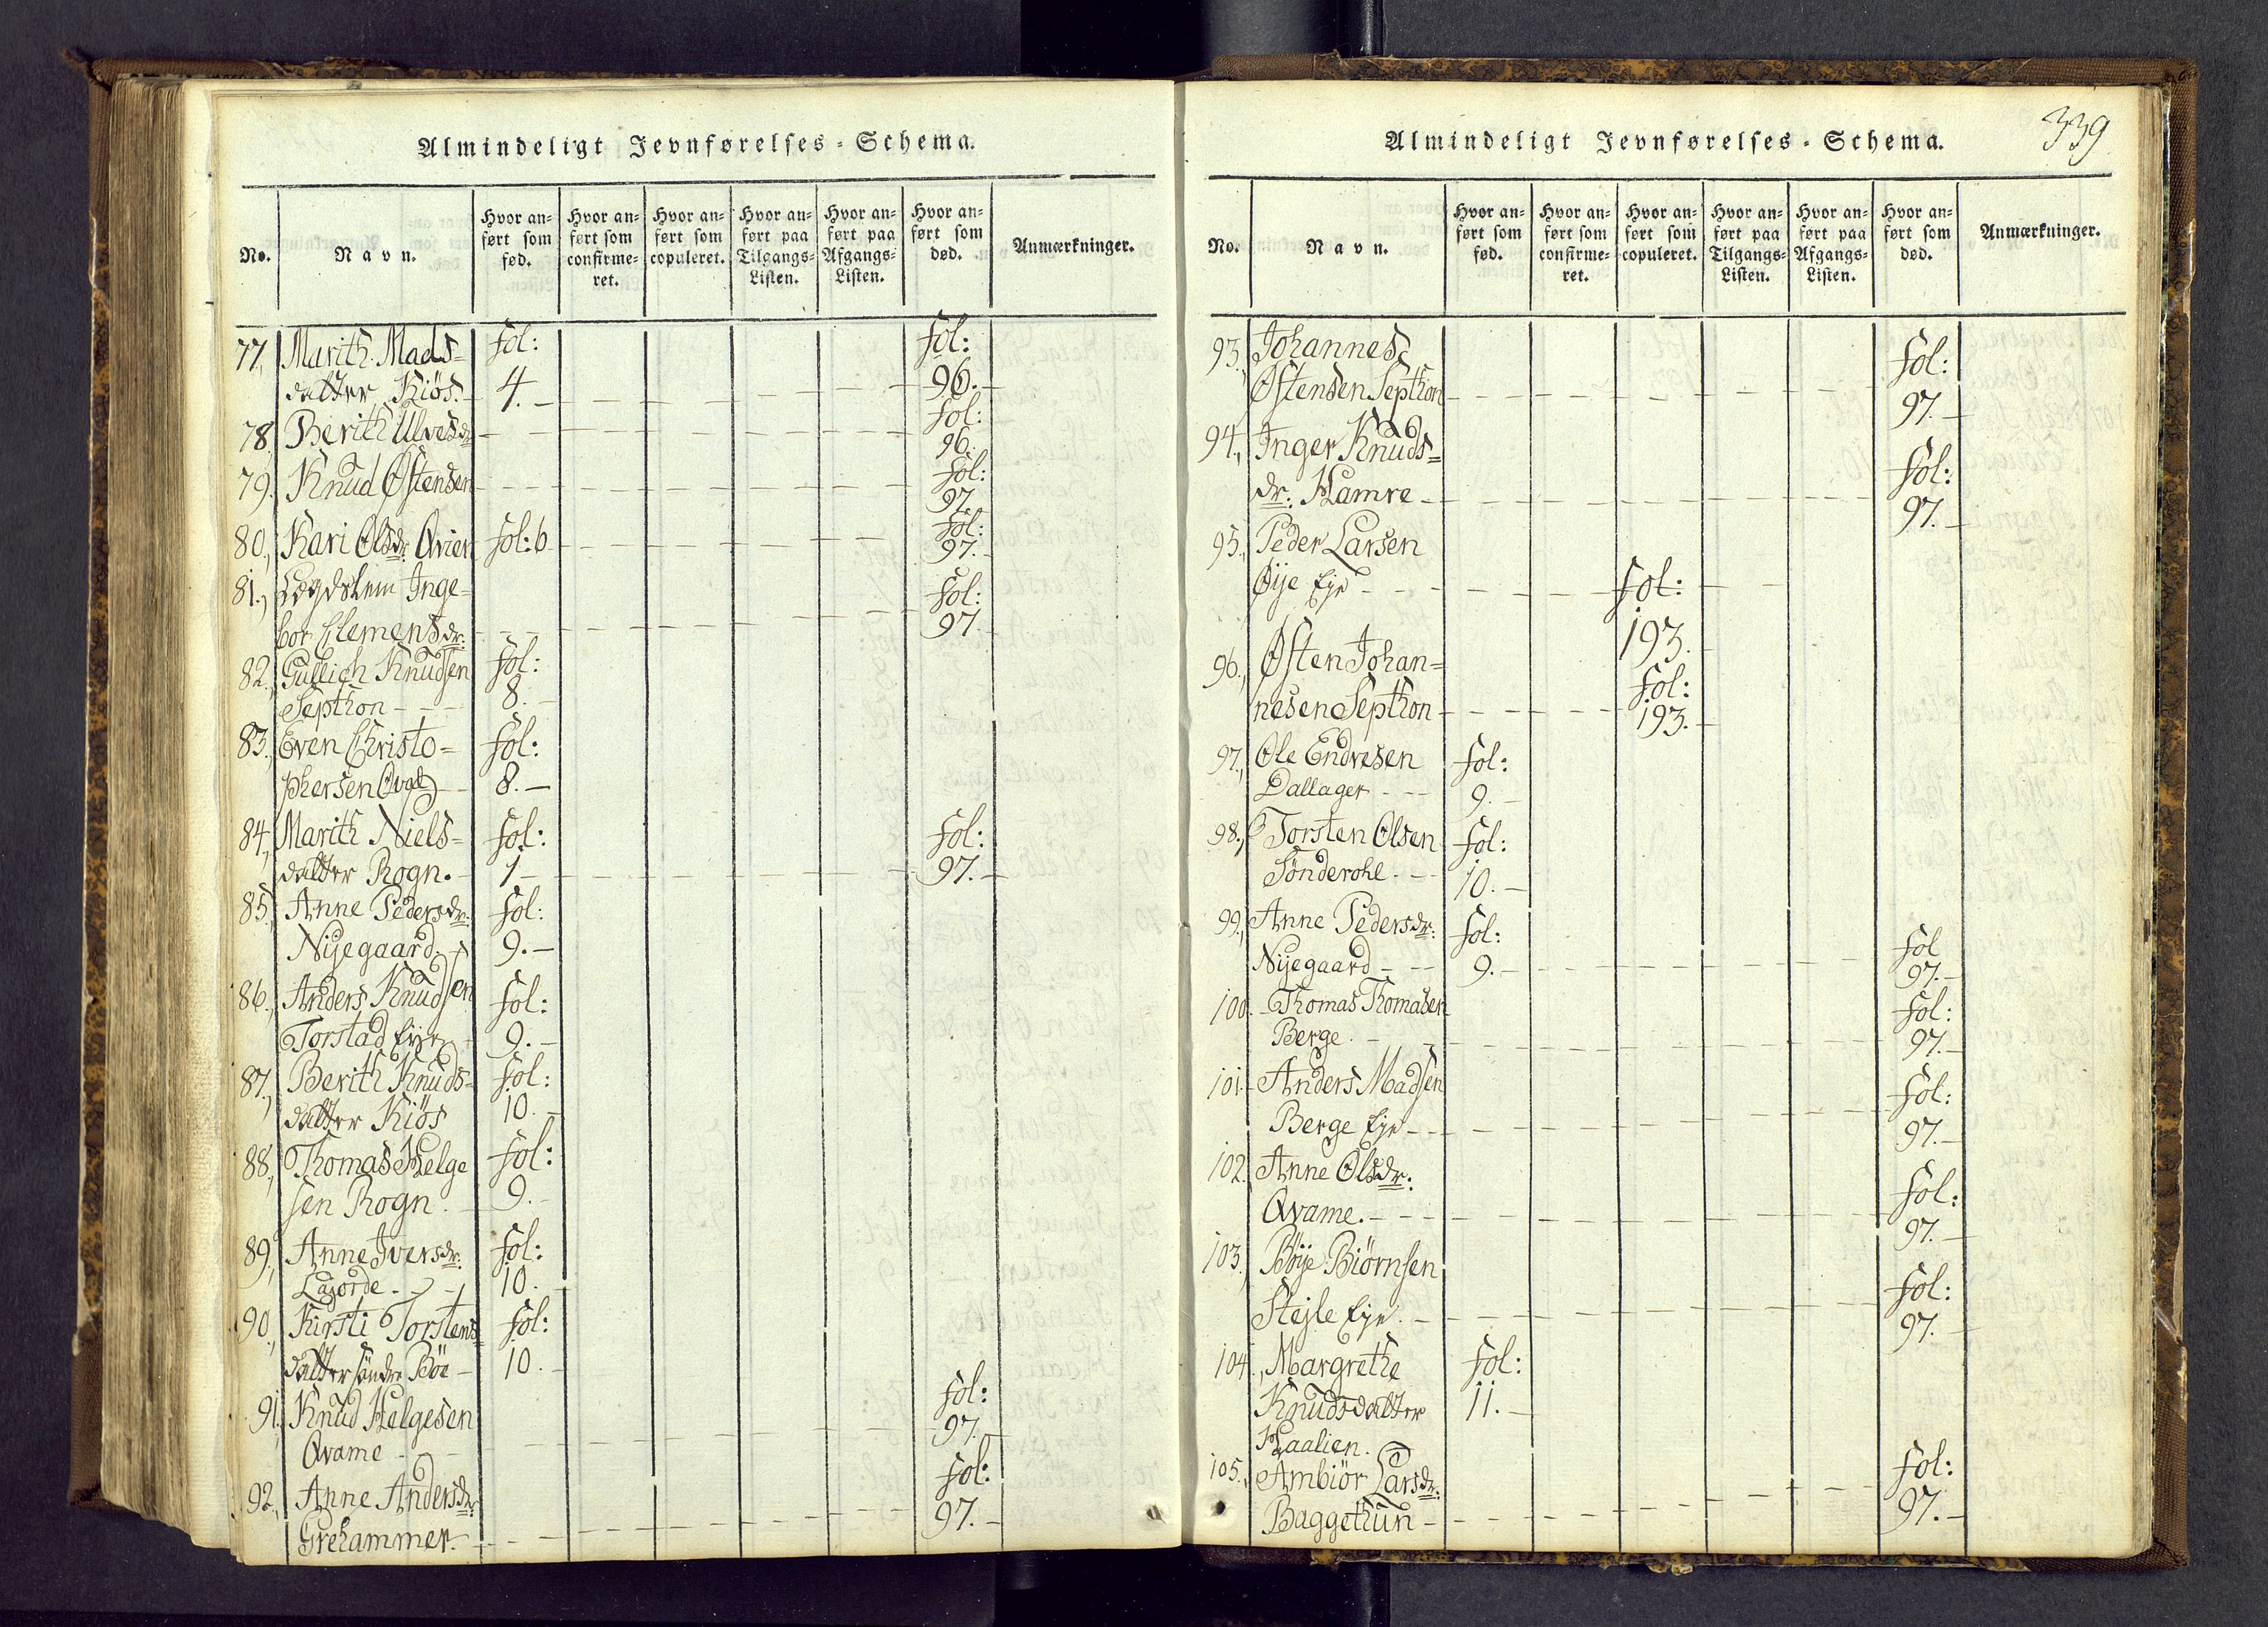 Almindeligt Jevnførelses-Schema.
No. Navn. Hvor anført som fød. Hvor anført som confirmeret. Hvor anført som copuleret. Hvor anført paa Tilgangs-Listen. Hvor anført paa Afgangs-Listen. Hvor anført som død. Anmærkninger.
77, Marith Mads= fol: fol:
datter Kiös. 4. 96.
78, Berith Ulvesdr fol: 96.
79. Knud Østensen fol: 97.
80, Kari Olsdr: Qvien fol: 6 fol: 97.
81., Lægdslem Inge= fol:
bor Clemensdr: 97
82., Gullich Knudsen fol:
Septhon 8.
83. Even Christo= fol:
phersen 8.
84, Marith Niels= fol: fol:
datter Rogn. 1 97.
85, Anne Pedersdr: fol:
Nijegaard. 9.
86., Anders Knudsen fol:
Torstad Eje 9.
87, Berith Knuds= fol:
datter Kiös 10.
88, Thomas Helge fol:
sen Rogn. 9.
89., Anne Iversdr: fol:
10.
90, Kirsti Torstens= fol:
datter söndre Böe 10.
91, Knud Helgesen fol:
Qvame 97.
92., Anne Andersdr: fol:
Grehammer. 97.
Almindeligt Jevnførelses-Schema.
339
No. Navn. Hvor anført som fød. Hvor anført som confirmeret. Hvor anført som copuleret. Hvor anført paa Tilgangs-Listen. Hvor anført paa Afgangs-Listen. Hvor anført som død. Anmærkninger.
93, Johannes fol:
Østensen Septhon 97.
94., Inger Knuds= fol:
dr: Hamre 97.
95., Peder Larsen
Øije Eje fol: 193.
96., Østen Johan= fol:
nesen Septhon 193.
97., Ole Endresen fol:
Dallager 9.
98., Torsten Olsen fol:
Sönderohl. 10.
99., Anne Pedersdr: fol: fol
Nijegaard 9. 97.
100. Thomas Thomasen fol:
Berge. 97.
101. Anders Madsen fol:
Berge Eje 97.
102. Anne Olsdr: fol:
Qvame. 97.
103, Böije Biörnsen fol:
Stejle Eje. 97.
104., Margrethe fol:
Knudsdatter 11.
Haalien.
105., Ambiör Larsdr: fol:
Baggethun 97.